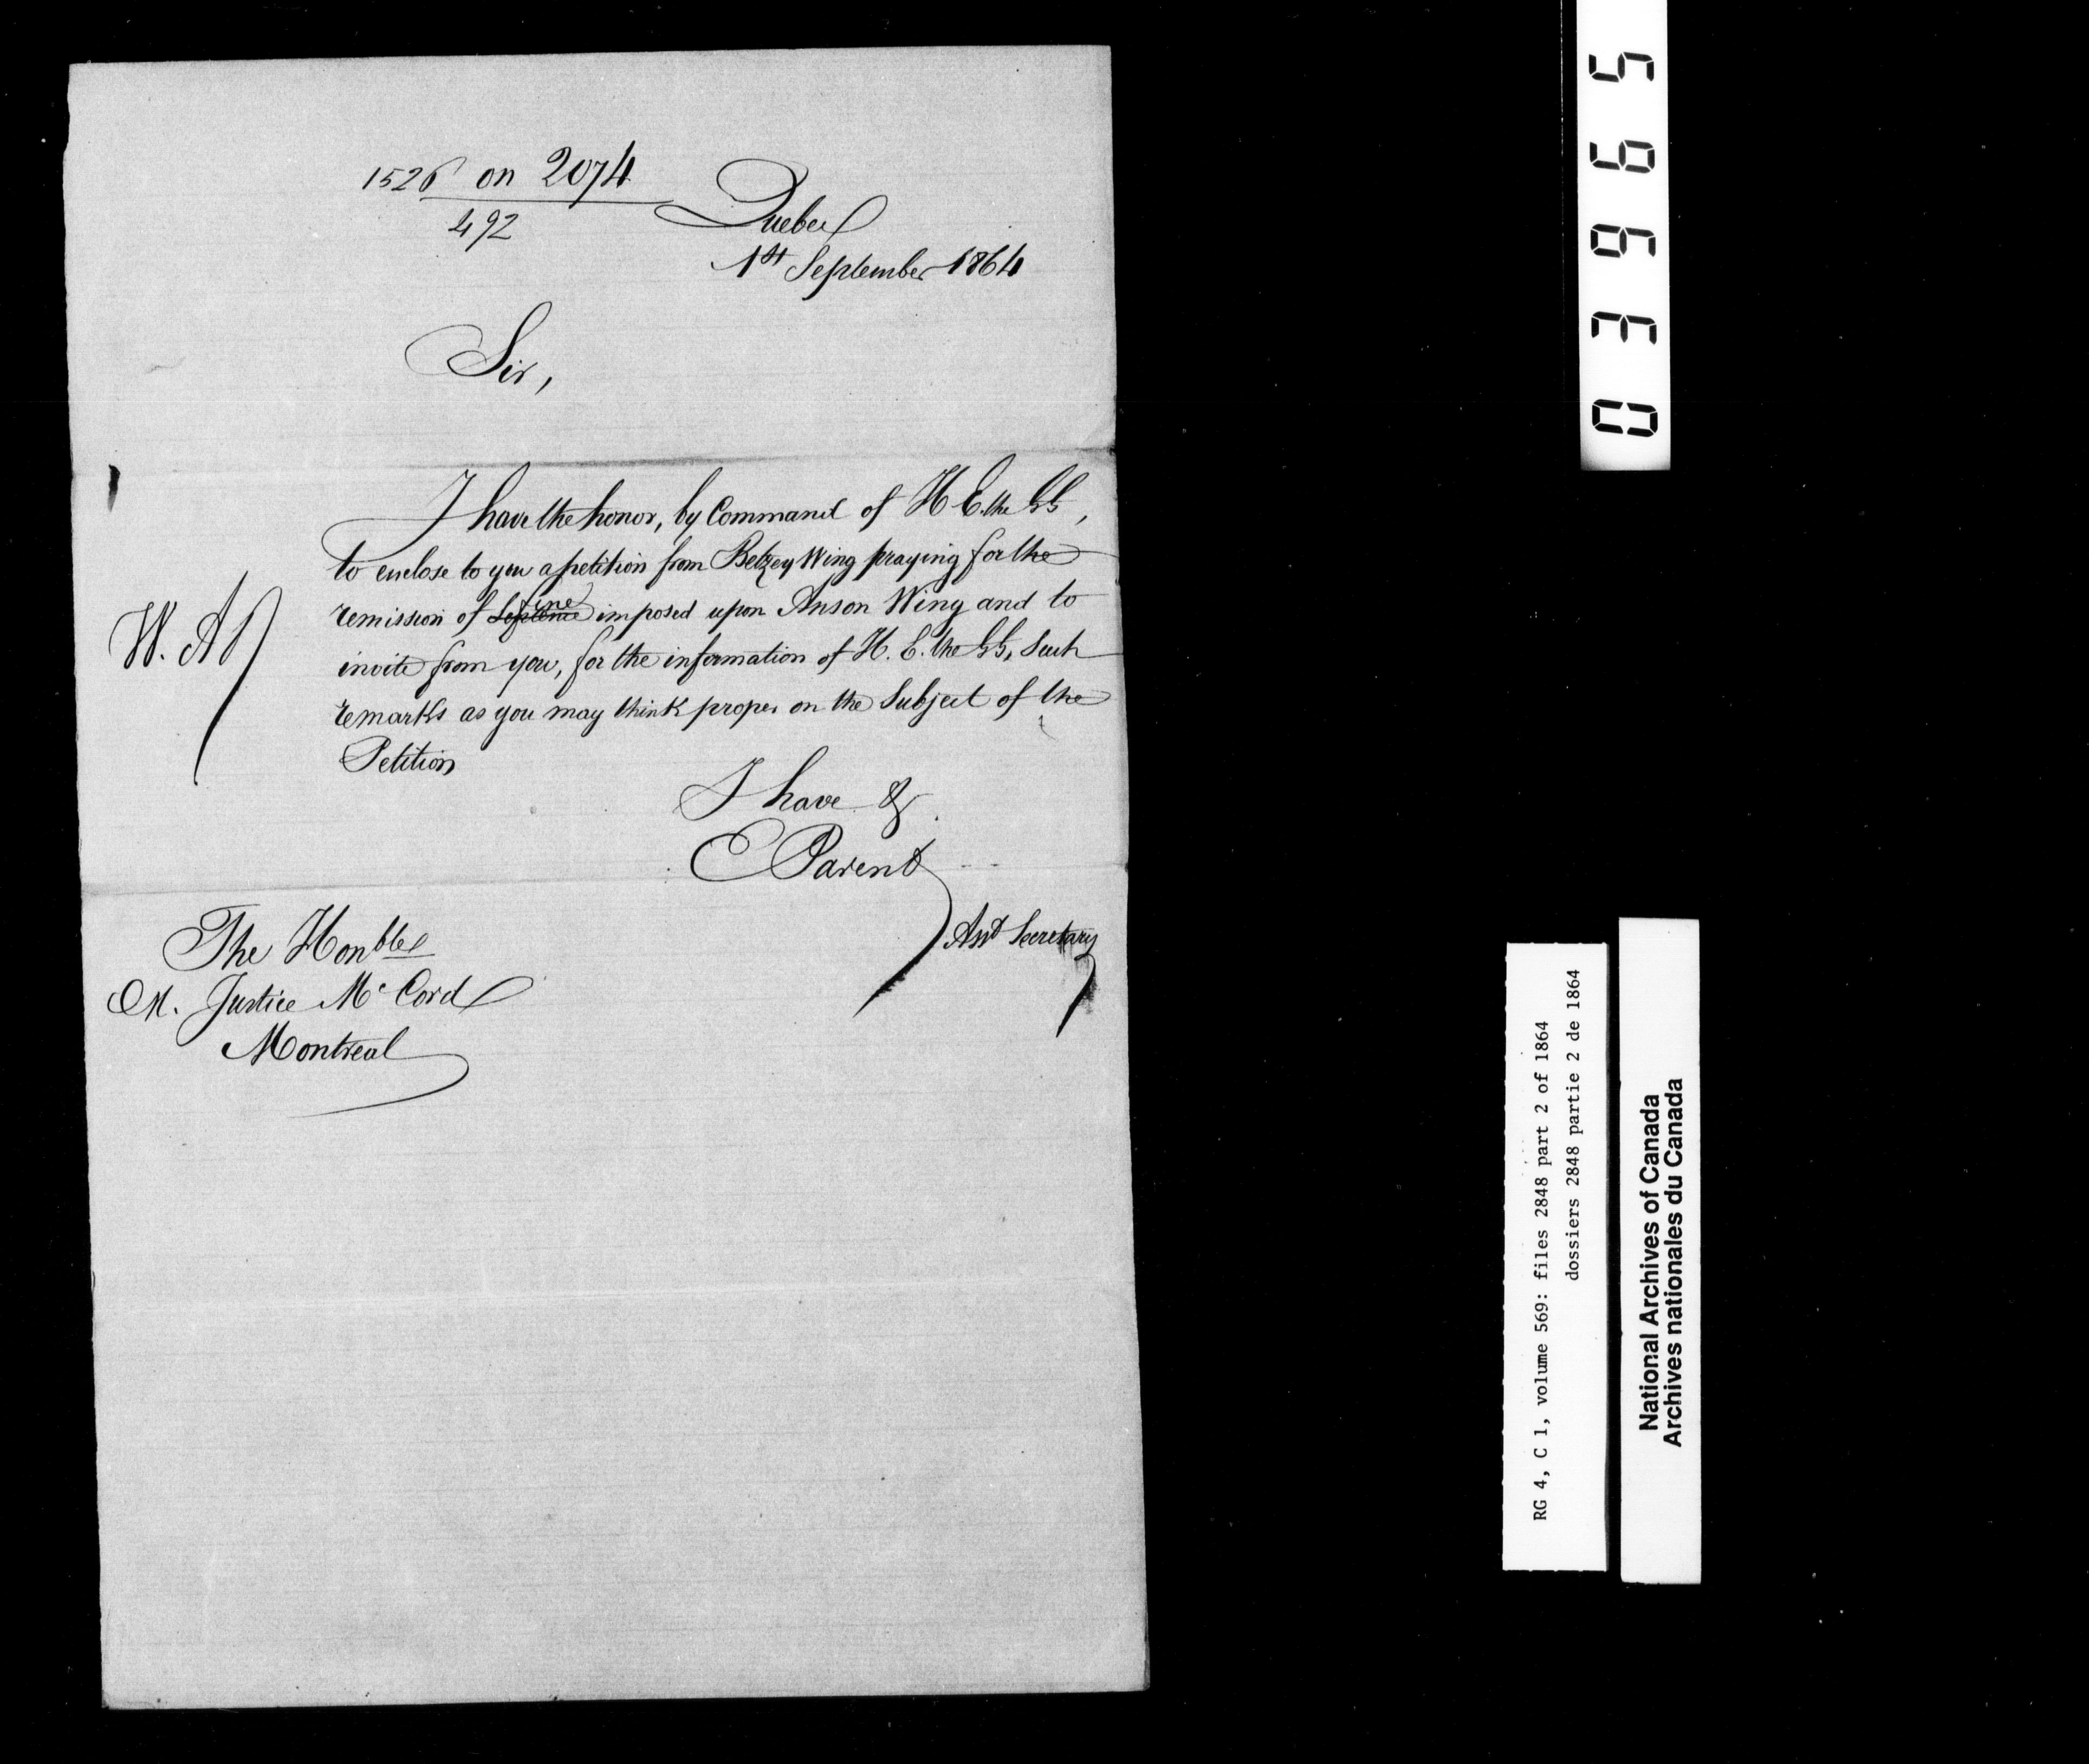 1526 on 2074
492
Quebec
1st September 1864
Sir,
I have the honor, by Command of H E. the GG,
to enclose to you a petition from Betzey Wing praying for the
remission of fine imposed upon Anson Wing and to
invite from you, for the information of H. E. the GG, such
remarks as you may think proper on the Subject of the
Petition
W. A
I have &
E Parent
Asst Secretary
The Honble
M. Justice McCord
Montreal
03965
RG 4, C 1, volume 569: files 2848 part 2 of 1864
dossiers 2848 partie 2 de 1864
National Archives of Canada
Archives nationales du Canada